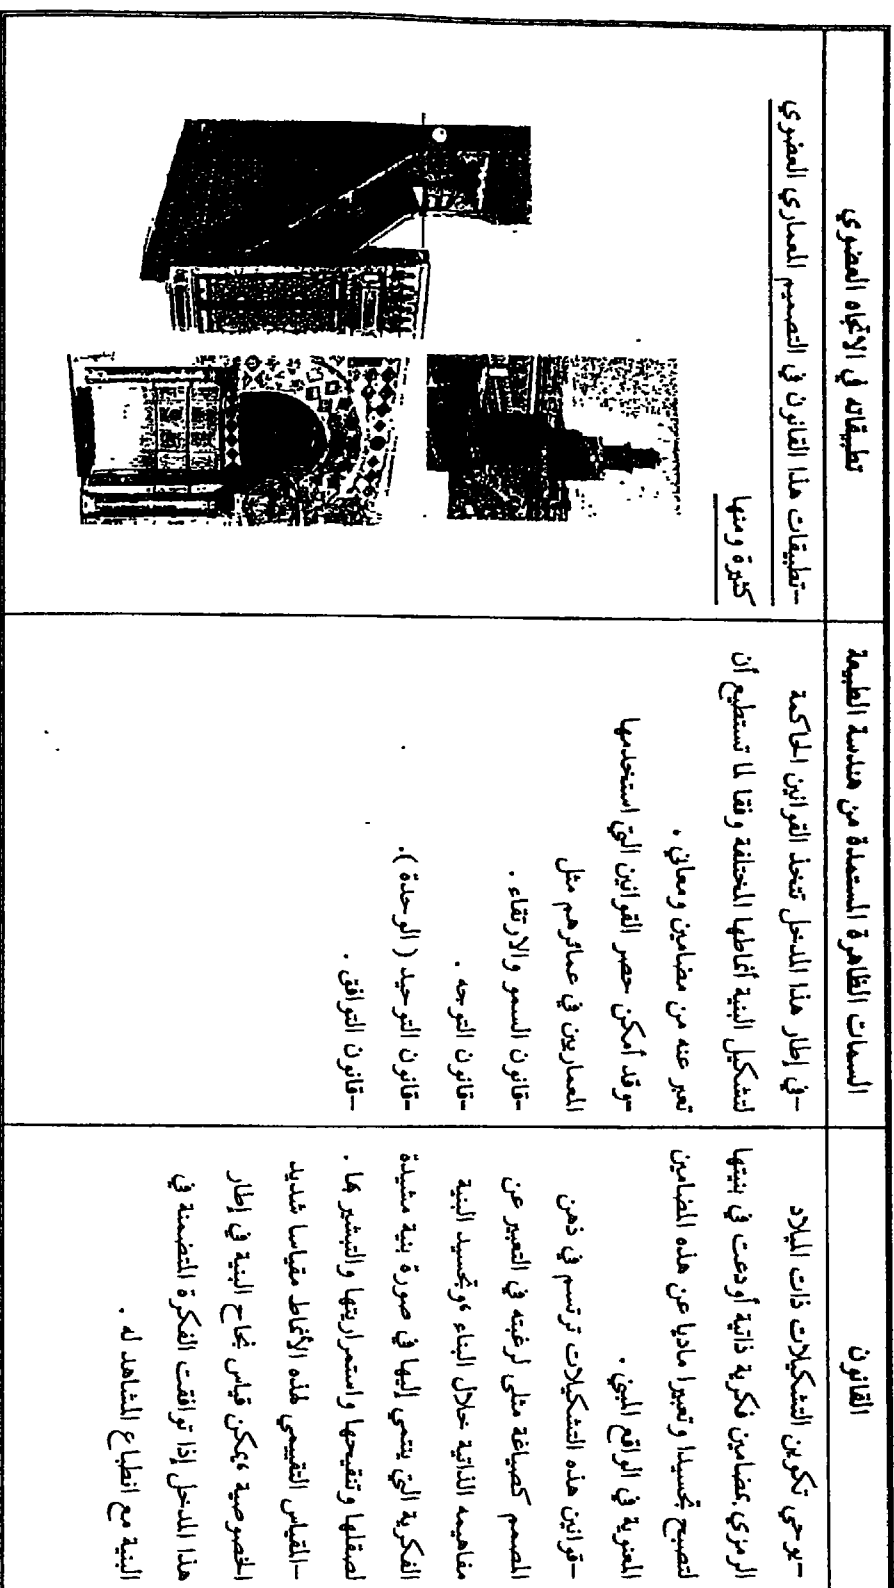 القانون
-يوحي تكوين التشكيلات ذات الميلاد
الرمزي بمضامين فكرية ذاتية أودعت في بنيتها
لتصبح تجسيدا وتعبيرا ماديا عن هذه المضامين
المعنوية في الواقع المبني .
-قوانين هذه التشكيلات ترتسم في ذهن
المصمم كصياغة مثلى لرغبته في التعبير عن
مفاهيمه الذاتية خلال البناء ،وتجسيد البنية
الفكرية التي ينتمي إليها في صورة بنية مشيدة
لصقلها وتنقيحها واستمراريتها والتبشير بها .
-المقياس التقييمي لهذه الأنماط مقياسا شديد
الخصوصية ،يمكن قياس نجاح البنية في إطار
هذا المدخل إذا توافقت الفكرة المتضمنة في
البنية مع انطباع المشاهد له .
السمات الظاهرة المستمدة من هندسة الطبيعة
-في إطار هذا المدخل تتخذ القوانين الحاكمة
لتشكيل البنية أنماطها المختلفة وفقا لما تستطيع أن
تعبر عنه من مضامين ومعاني .
-وقد أمكن حصر القوانين التي استخدمها
المعماريين في عمائرهم مثل
-قانون السمو والارتقاء .
-قانون التوجه .
-قانون التوحيد ( الوحدة ).
-قانون التوافق .
تطبيقاته في الاتجاه العضوي
-تطبيقات هذا القانون في التصميم المعماري العضوي
كثيرة ومنها